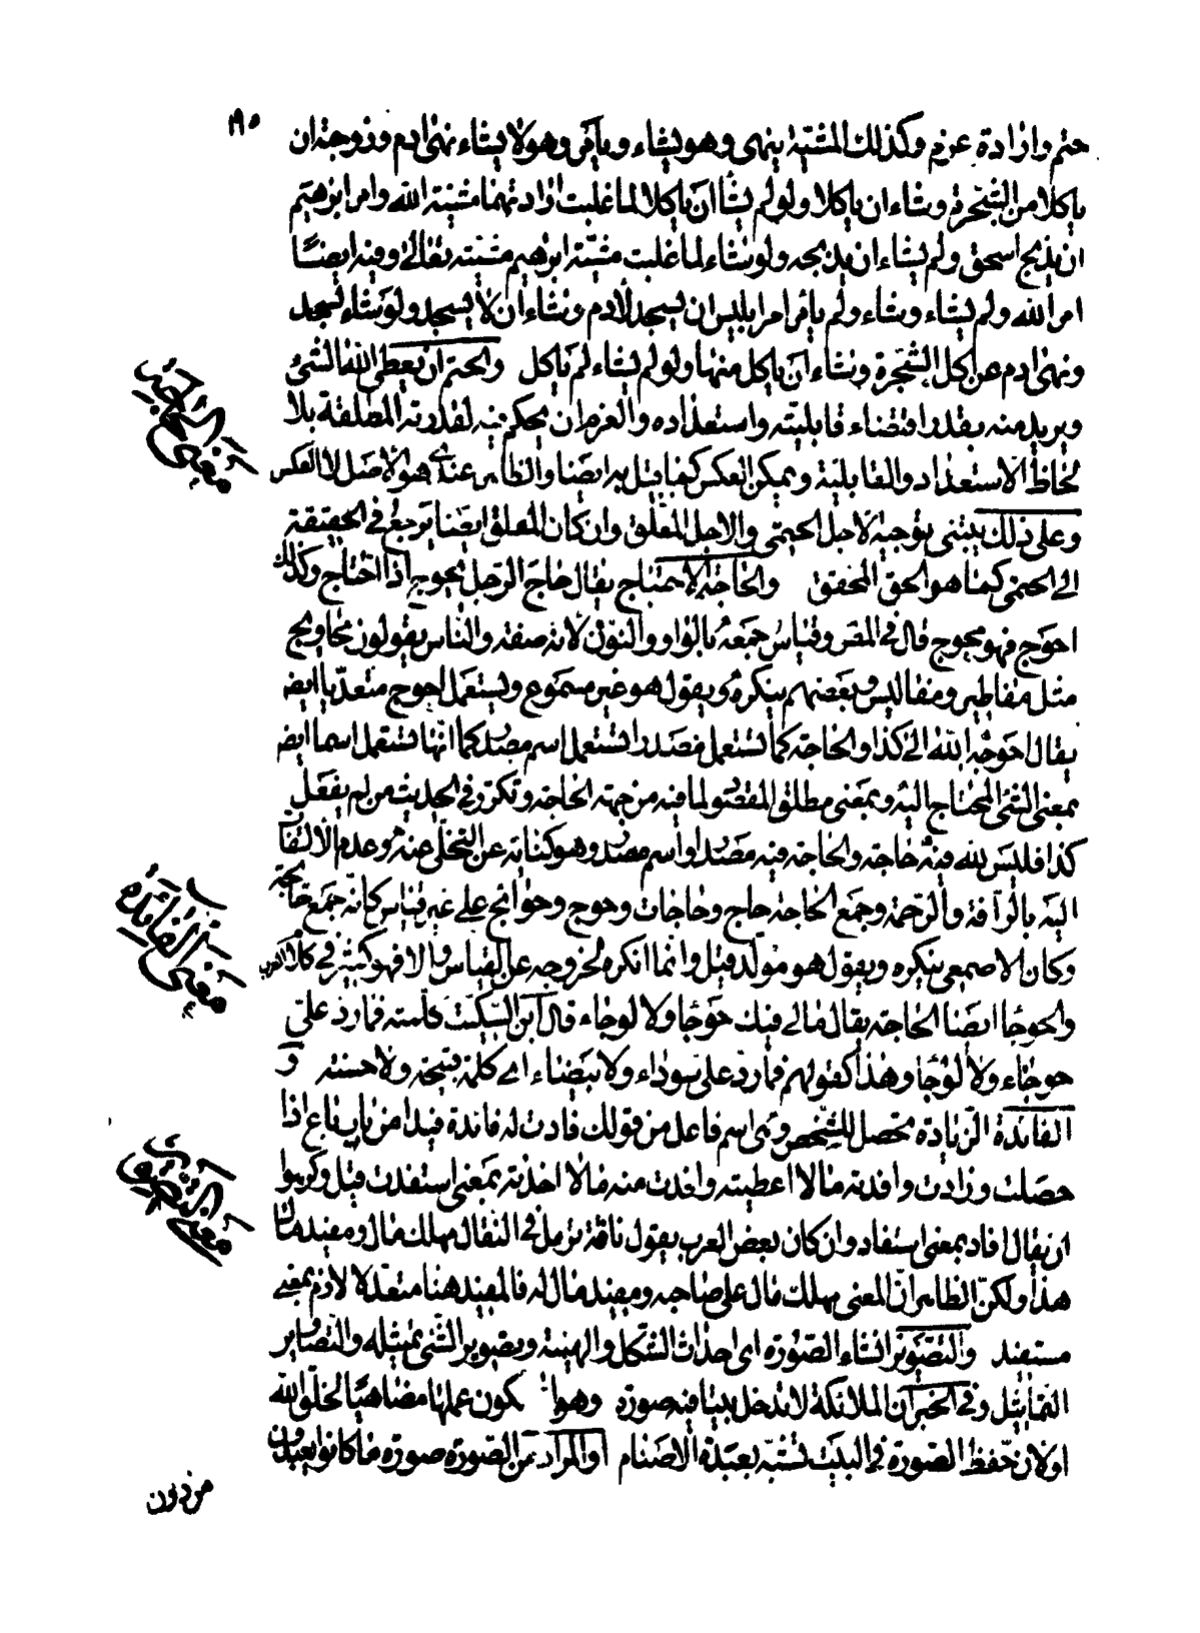 ١٩٥
حتم وارادة عزم وكذلك المشيّة ينهى وهو يشاء ويأمر وهو لا يشاء نهى ادم وزوجته ان
ياكلا من الشجرة وشاء ان ياكلا ولو لم يشأ ان ياكلا لما غلبت ارادتهما مشية الله وامر ابرهيم
ان يذبح اسحق ولم يشاء ان يذبحه ولو شاء لما غلبت مشيّة ابرهيم مشيته تعالى وفيه ايضًا
امر الله ولم يشاء وشاء ولم يأمر امر ابليس ان يسجد لادم وشاء ان لا يسجد ولو شاء لسجد
ونهى ادم عن اكل الشجرة وشاء ان ياكل منها ولو لم يشاء لم ياكل والحتم ان يعطى الله الشئ
ويريد منه بقدر اقتضاء قابليته واستعداده والعزم ان يحكم فيه لقدرته المطلقة بلا
لحاظ الاستعداد والقابلية ويمكن العكس كما قيل به ايضا والظاهر عندى هو الاصل لا العكس
وعلى ذلك يبتنى توجيه الاجل الحتمى والاجل المعلق وان كان المعلق ايضا يرجع فى الحقيقة
الى الحتمى كما هو الحق المحقق والحاجة الاحتياج يقال حاج الرجل يحوج اذا احتاج وكذلك
احوج فهو محوج قال فى المصـ وقياس جمعه بالواو والنون لانه صفة والناس يقولون محاويج
مثل مفاطير ومفاليس وبعضهم ينكره ويقول هو غير مسموع ويستعمل احوج متعديا ايضـ
يقال احوجه الله الى كذا والحاجة كما تستعمل مصدرا تستعمل اسم مصدر كما انها تستعمل اسما ايضـ
بمعنى الشئ المحتاج اليه وبمعنى مطلق المقصود لما فيه من جهة الحاجة وتكرر فى الحديث من لم يفعل
كذا فليس لله فيه حاجة والحاجة فيه مصدر او اسم مصدر وهو كناية عن التخلّى عنه وعدم الالتفات
اليه بالرأفة والرحمة وجمع الحاجة حاج وحاجات وحوج وحوائج على غير قياس كانه جمع حائجة
وكان الاصمعى ينكره ويقول هو مولد قيل وانما انكره لخروجه عن القياس والا فهو كثير فى كلام العرب
والحوجا ايضا الحاجة يقال مالى فيك حوجا ولا لوجاء قال ابن السكيت كلمته فما رد علىّ
حوجاء ولا لوجا وهذا كقولهم فما رد على سوداء ولا بيضاء اى كلمة قبيحة ولا حسنة و
الفائدة الزيادة تحصل للشخص وهى اسم فاعل من قولك فادت له فائدة فيدا من باب باع اذا
حصلت وزادت وافدته مالا اعطيته وافدت منه مالا اخذته بمعنى استفدت قيل وكرهوا
ان يقال افاد بمعنى استفاد وان كان بعض العرب يقول ناقة ترمل فى النقال مهلك مال ومفيد مال
هذا ولكن الظاهر ان المعنى مهلك مال على صاحبه ومفيد مال له فالمفيد هنا متعد لا لازم بمعنى
مستفيد والتصوير انشاء الصورة اى احداث الشكل والهيئة وتصوير الشئ تمثيله والتصاوير
التماثيل وفى الخبر ان الملائكة لا تدخل بيتا فيه صورة وهو يكون عملها مضاهيا لخلق الله
او لان حفظ الصورة فى البيت تشبّه بعبدة الاصنام او المراد من الصورة صورة ما كانوا يعبدون
من دون
معنى الحاجة
معنى الفائدة
معنى التصوير